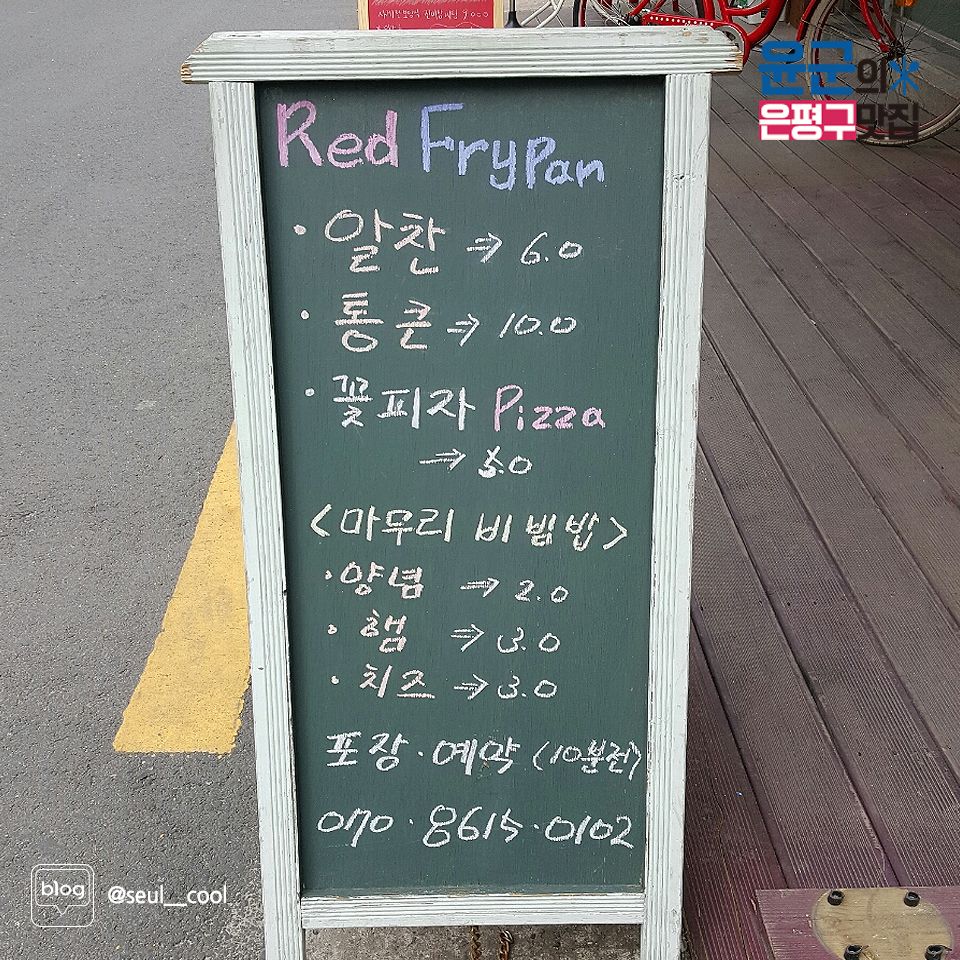 윤군의
은평구맛집
Red FryPan
· 알찬 → 6.0
· 통큰 → 10.0
· 꽃피자 Pizza
→ 5.0
<마무리 비빔밥>
· 양념 → 2.0
· 햄 → 3.0
· 치즈 → 3.0
포장 · 예약 (10분전)
070 · 8615 · 0102
blog @seul__cool